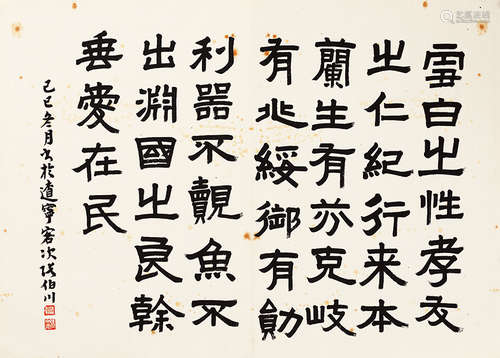 雪白之性孝友
之仁紀行来本
蘭生有芬克岐
有兆綏御有勛
利器不覿魚不
出淵國之良幹
垂愛在民
己巳冬月书於遼寧客次張伯川